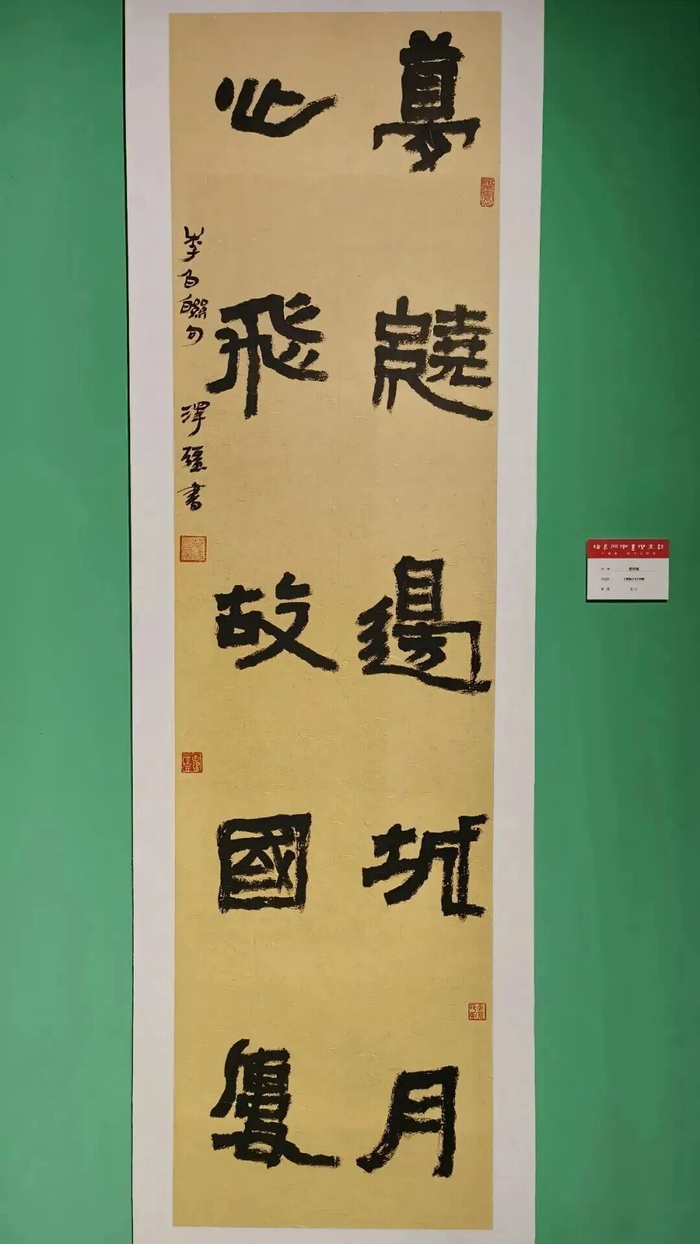 夢繞邊城月
心飛故國樓
李白聯句 澤疆書